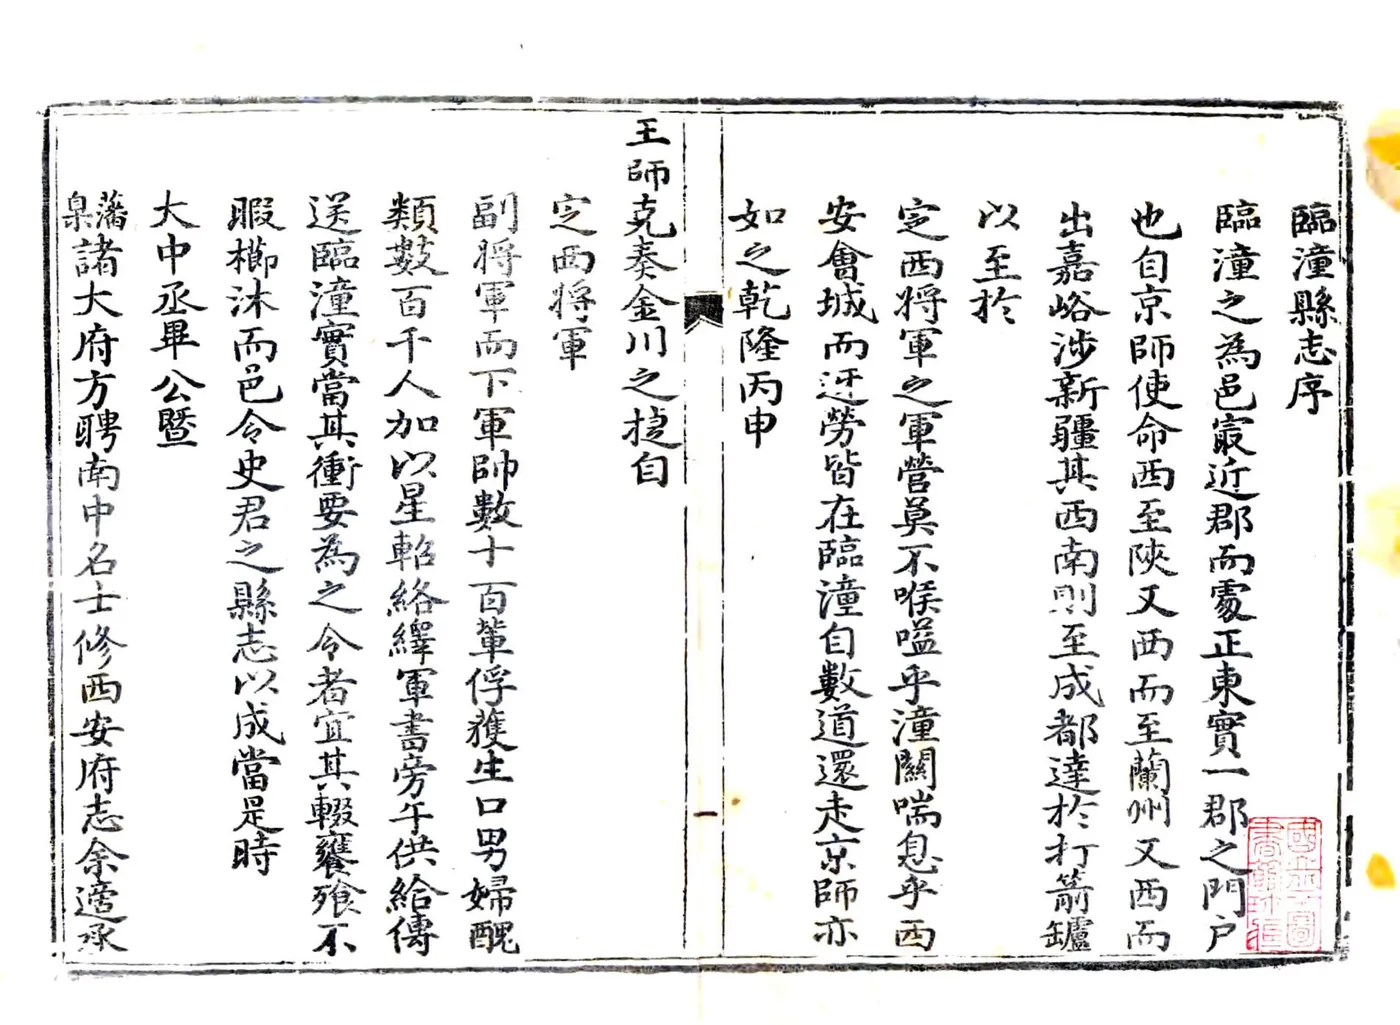 臨潼縣志序
臨潼之為邑㝡近郡而處正東實一郡之門戶
也自京師使命西至陝又西而至蘭州又西而
出嘉峪涉新疆其西南則至成都達於打箭鑪
以至於
定西将軍之軍營莫不喉嗌乎潼關喘息乎西
安會城而迓勞皆在臨潼自數道還走京師亦
如之乾隆丙申
王師克奏金川之捷自
定西将軍
副将軍而下軍帥數十百輩俘獲生口男婦醜
類數百千人加以星軺絡繹軍書旁午供給傳
送臨潼實當其衝要為之令者宜其輟饔飱不
暇櫛沐而邑令史君之縣志以成當是時
大中丞畢公暨
藩臬諸大府方聘南中名士修西安府志余適承
一
國立北圖
書館珍